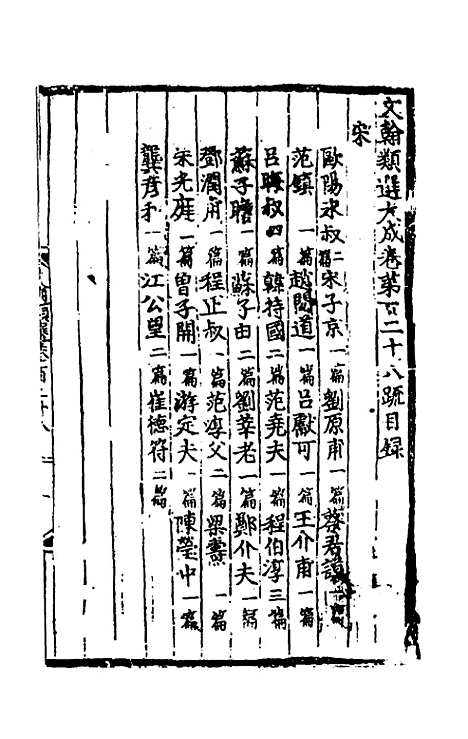 文翰類選大成卷第百二十八疏目錄
宋
歐陽永叔二篇宋子京一篇劉原甫一篇蔡君謨一篇
范鎮一篇趙閱道一篇呂獻可一篇王介甫一篇
呂晦叔四篇韓持國二篇范堯夫一篇程伯淳三篇
蘇子瞻一篇蘇子由二篇劉莘老一篇鄭介夫一篇
鄧潤甫一篇程正叔一篇范淳父二篇梁燾一篇
宋光庭一篇曾子開一篇游定夫一篇陳瑩中一篇
龔彥和一篇江公望二篇崔德符二篇